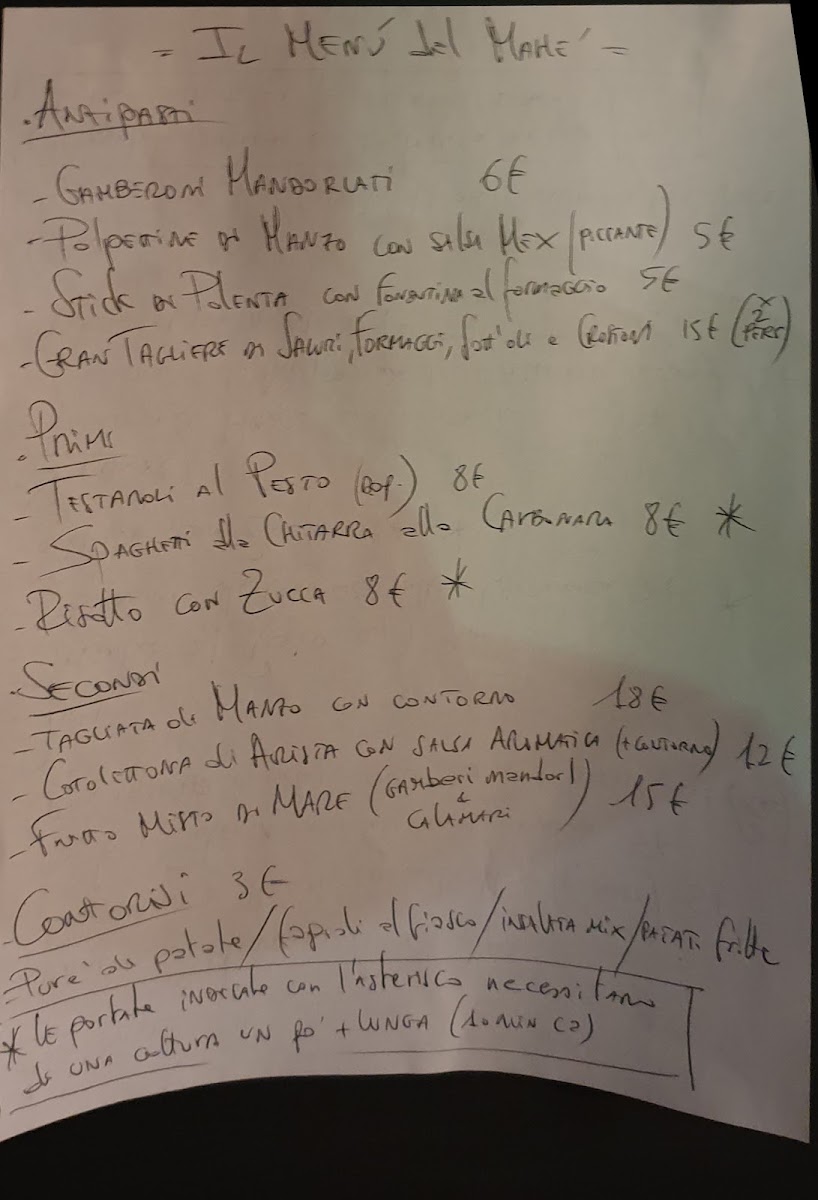 = Il Menù del Mamé =
. Antipasti
- Gamberoni Mandorlati 6€
- Polpettine di Manzo con salsa Mex (piccante) 5€
- Stick di Polenta con fonentina al formaggio 5€
- Gran Tagliere di Salumi, Formaggi, Sott'oli e Crostoni 15€ (x 2 pers)
. Primi
- Testaroli al Pesto (DOP.) 8€
- Spaghetti alla Chitarra alla Carbonara 8€ *
- Risotto con Zucca 8€ *
. Secondi
- Tagliata di Manzo con contorno 18€
- Cotolettona di Arista con salsa aromatica (+ contorno) 12€
- Fritto Misto di Mare (gamberi mandorl & calamari) 15€
. Contorni 3€
- Pure' di patate / fagioli al fiasco / insalata mix / patati fritte
* Le portate indicate con l'asterisco necessitano
di una cottura un po' + lunga (10 min ca)